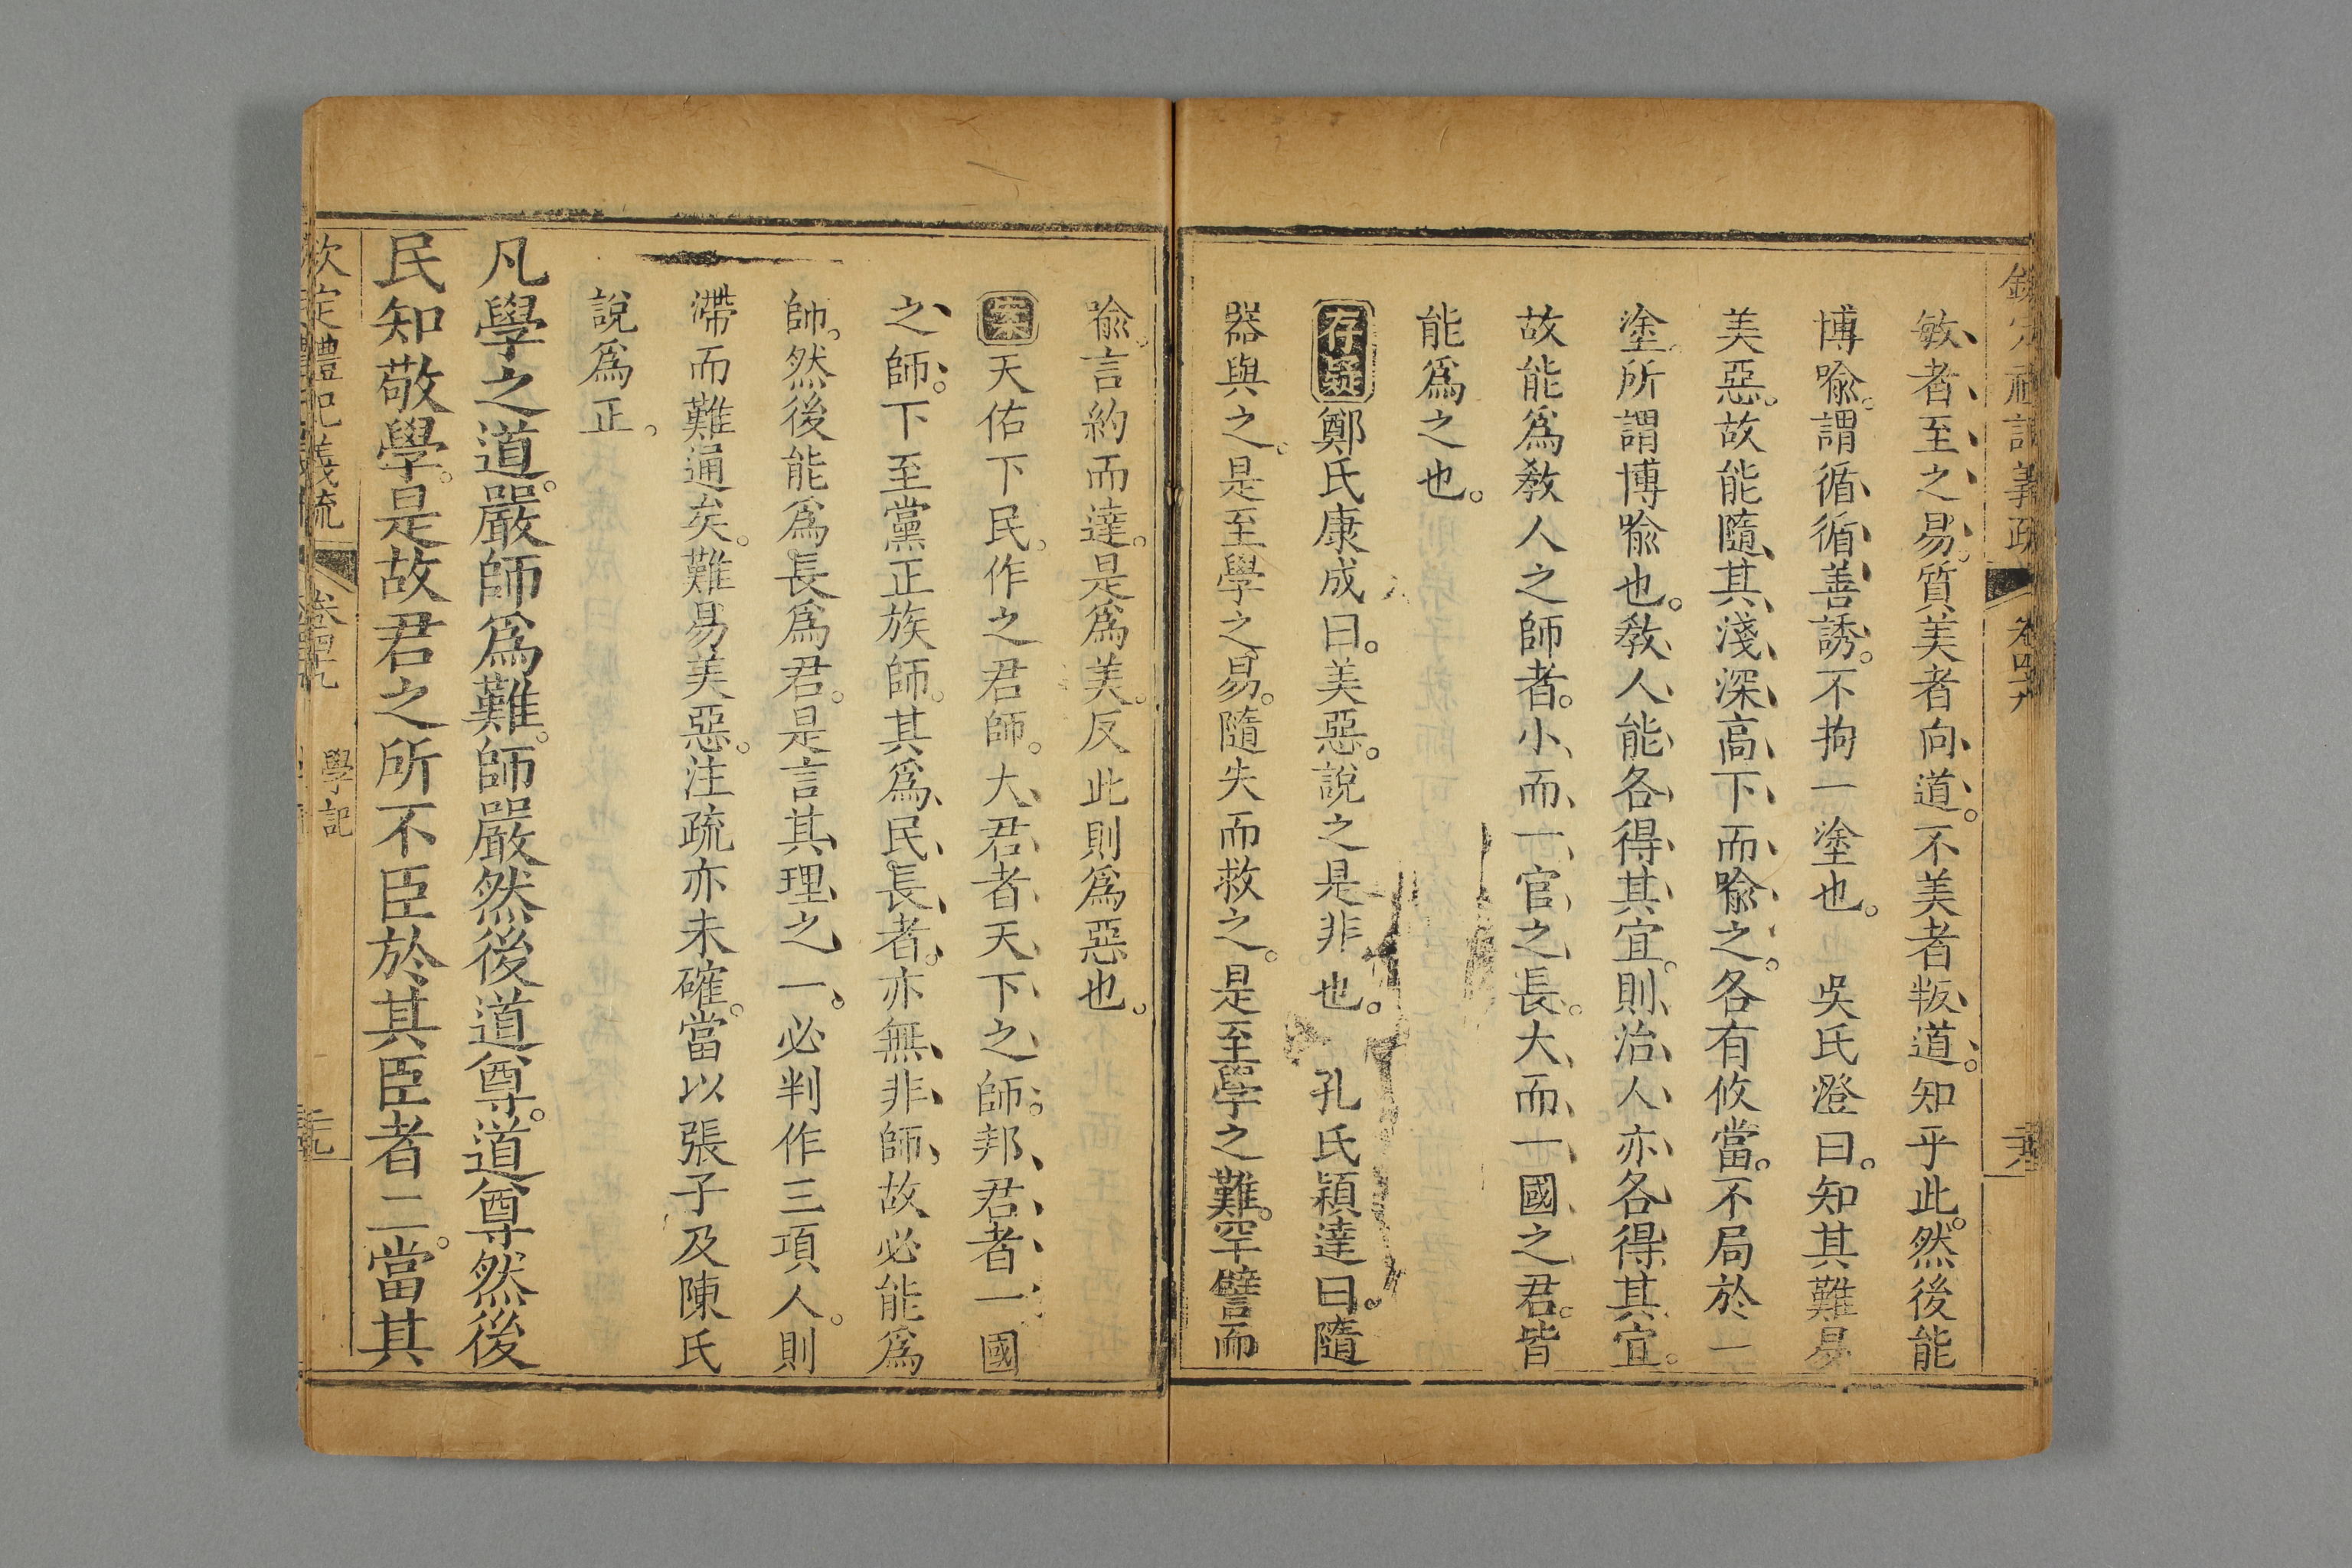 欽定禮記義疏 卷四十九
敏者至之易。質美者向道。不美者叛道。知乎此。然後能
博喩。謂循循善誘。不拘一塗也。 吳氏澄曰。知其難易
美惡。故能隨其淺深高下而喩之。各有攸當。不局於一
塗。所謂博喩也。敎人能各得其宜。則治人亦各得其宜。
故能爲敎人之師者。小而一官之長。大而一國之君。皆
能爲之也。
存疑鄭氏康成曰。美惡。說之是非也。 孔氏穎達曰。隨
器與之。是至學之易。隨失而救之。是至學之難。罕譬而
喩。言約而達。是爲美。反此則爲惡也。
案天佑下民。作之君師。大君者天下之師。邦君者一國
之師。下至黨正族師。其爲民長者。亦無非師。故必能爲
師。然後能爲長爲君。是言其理之一。必判作三項人。則
滯而難通矣。難易美惡。注疏亦未確。當以張子及陳氏
說爲正。
凡學之道。嚴師爲難。師嚴然後道尊。道尊然後
民知敬學。是故君之所不臣於其臣者二。當其
欽定禮記義疏 卷四十九 學記